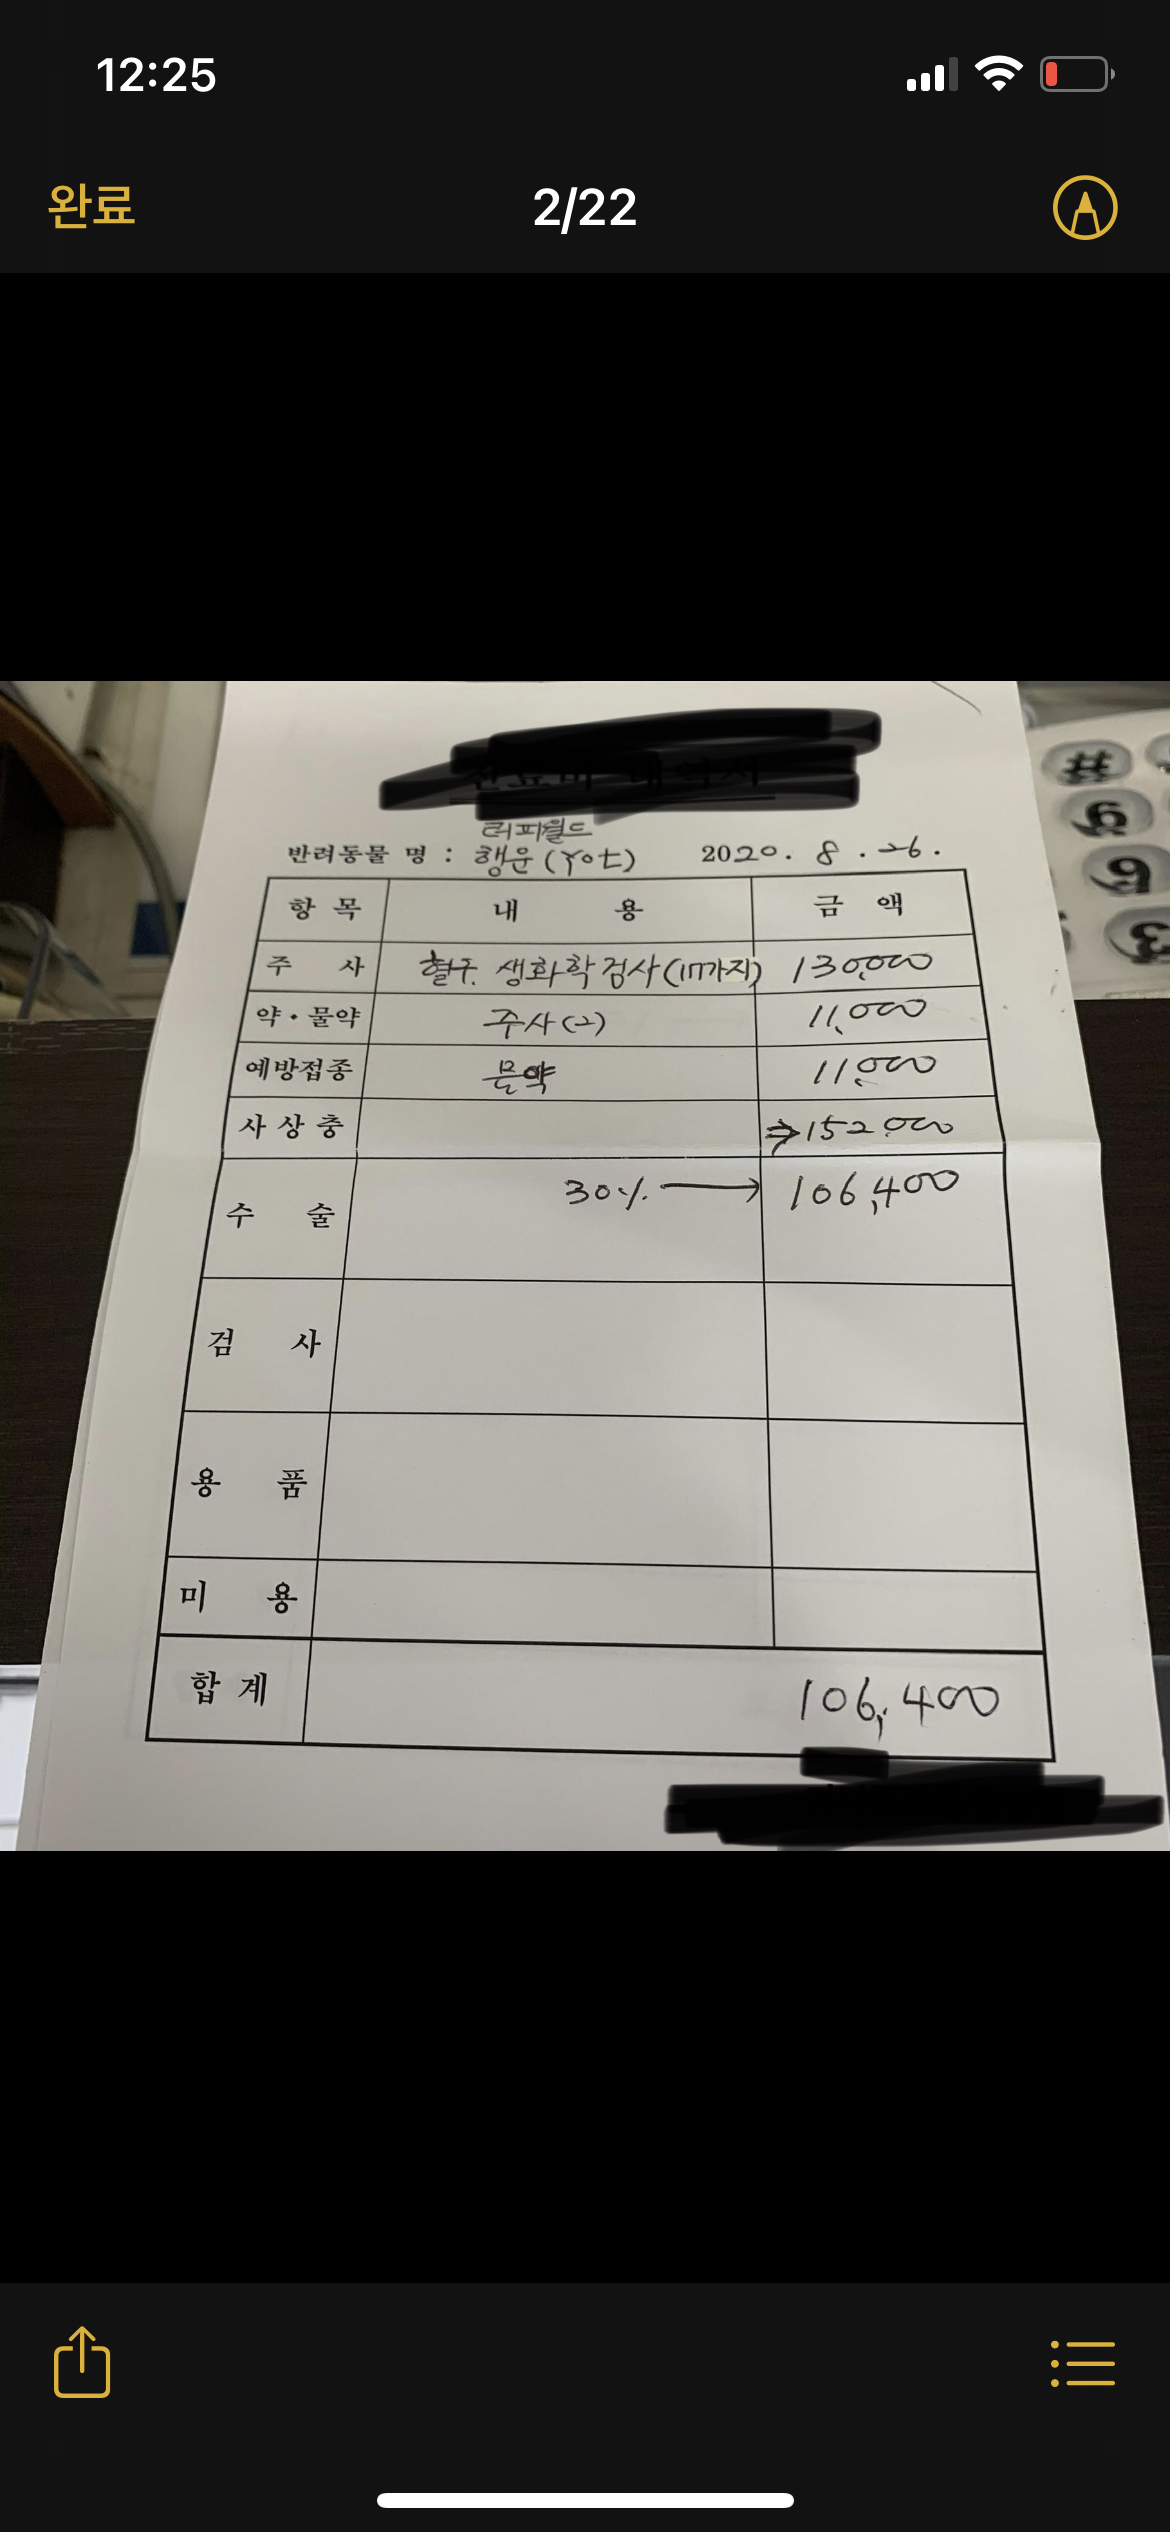 12:25
완료 2/22
러피월드
반려동물 명 : 행운 (Yot) 2020. 8 . 26 .
항 목 내 용 금 액
주 사 혈구. 생화학검사(17가지) 130,000
약·물약 주사(2) 11,000
예방접종 물약 11,000
사상충 ⇒152,000
수 술 30% → 106,400
검 사
용 품
미 용
합 계 106,400
#
9
6
3